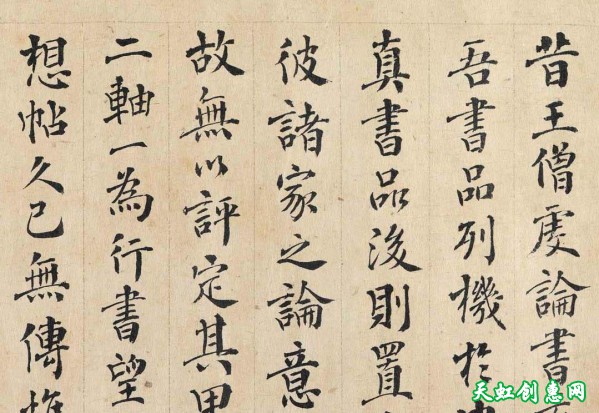 昔王僧虔論書
吾書品列機於
真書品後則置
彼諸家之論意
故無以評定其
二軸一為行書望
想帖久已無傳惟
天虹创意网